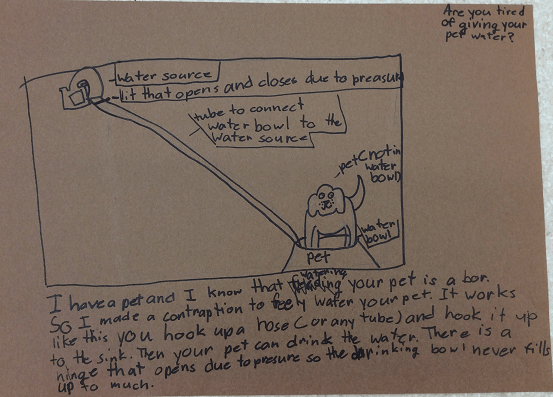 Are you tired
of giving your
pet water?
water source
lit that opens and closes due to preasure
tube to connect
water bowl to the
water source
pet(not in
water
bowl)
water
bowl
pet
I have a pet and I know that watering your pet is a bor.
So I made a contraption to water your pet. It works
like this you hook up a hose (or any tube) and hook it up
to the sink. Then your pet can drink the water. There is a
hinge that opens due to presure so the drinking bowl never fills
up to much.